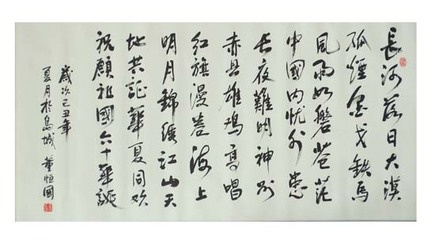 長河落日大漠
孤煙金戈铁馬
風雨如磐苍茫
中國内忧外患
長夜難明神州
赤县雄鸡高唱
红旗漫卷海上
明月錦繡江山天
地共証華夏同欢
祝願祖國六十華誕
歲次己丑年
夏月於島城 董恒國